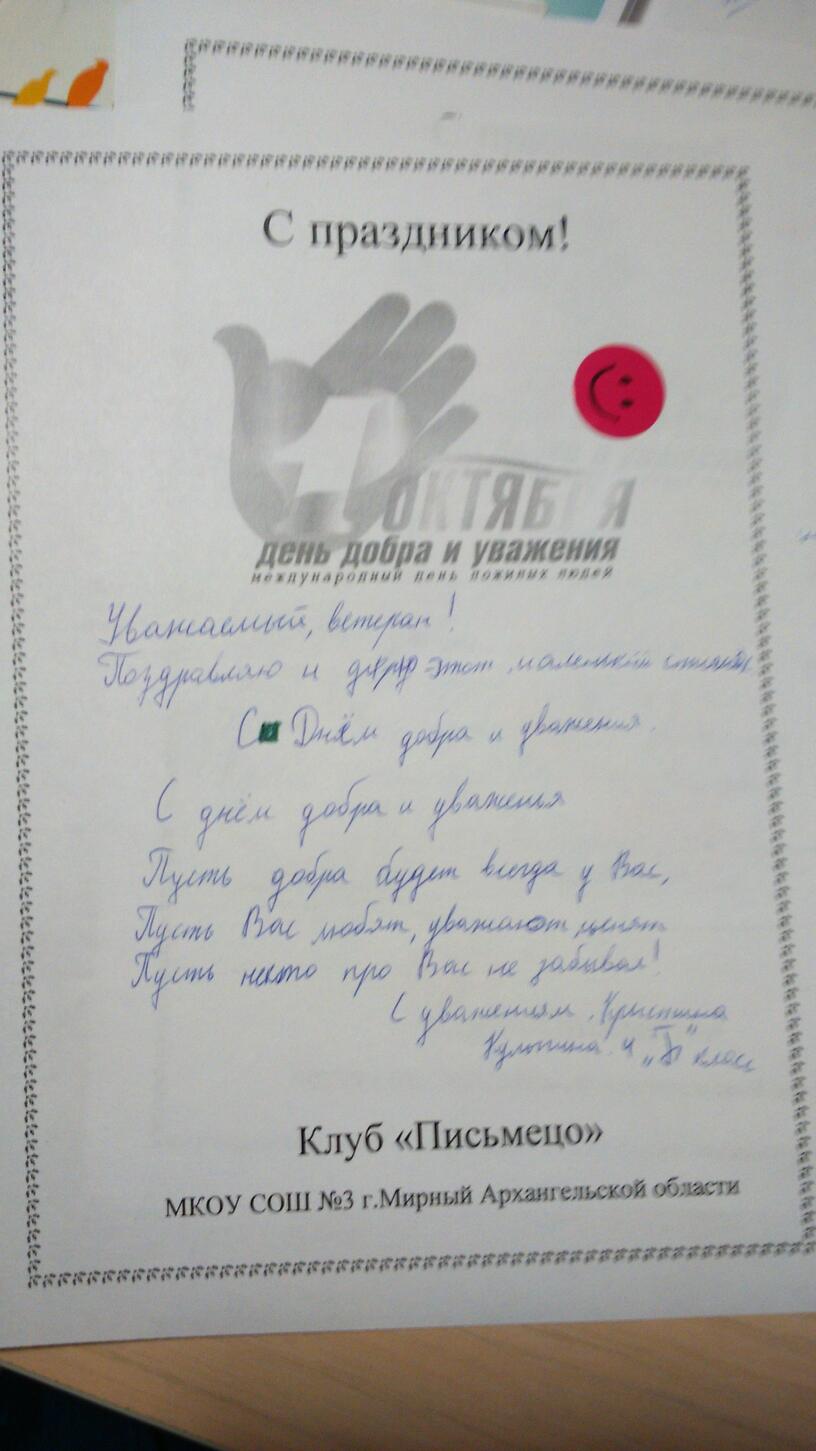 С праздником!
1 ОКТЯБРЯ
день добра и уважения
международный день пожилых людей
Уважаемый, ветеран!
Поздравляю и дарю этот маленький стишок
С Днём добра и уважения.
С днём добра и уваженья
Пусть добра будет всегда у Вас,
Пусть Вас любят, уважают, ценят
Пусть никто про Вас не забывал!
С уважением, Кристина
4 „Б" класс
Клуб «Письмецо»
МКОУ СОШ №3 г.Мирный Архангельской области